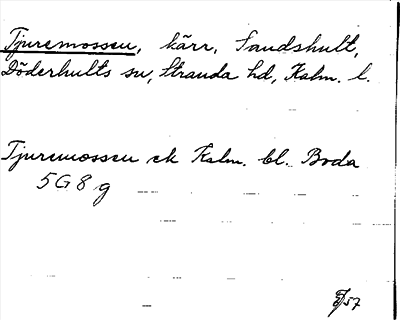 Tjuremossen, kärr, Sandshult,
Döderhults sn, Stranda hd, Kalm. l.
Tjuremossen ek Kalm. bl. Boda
5G8g
57